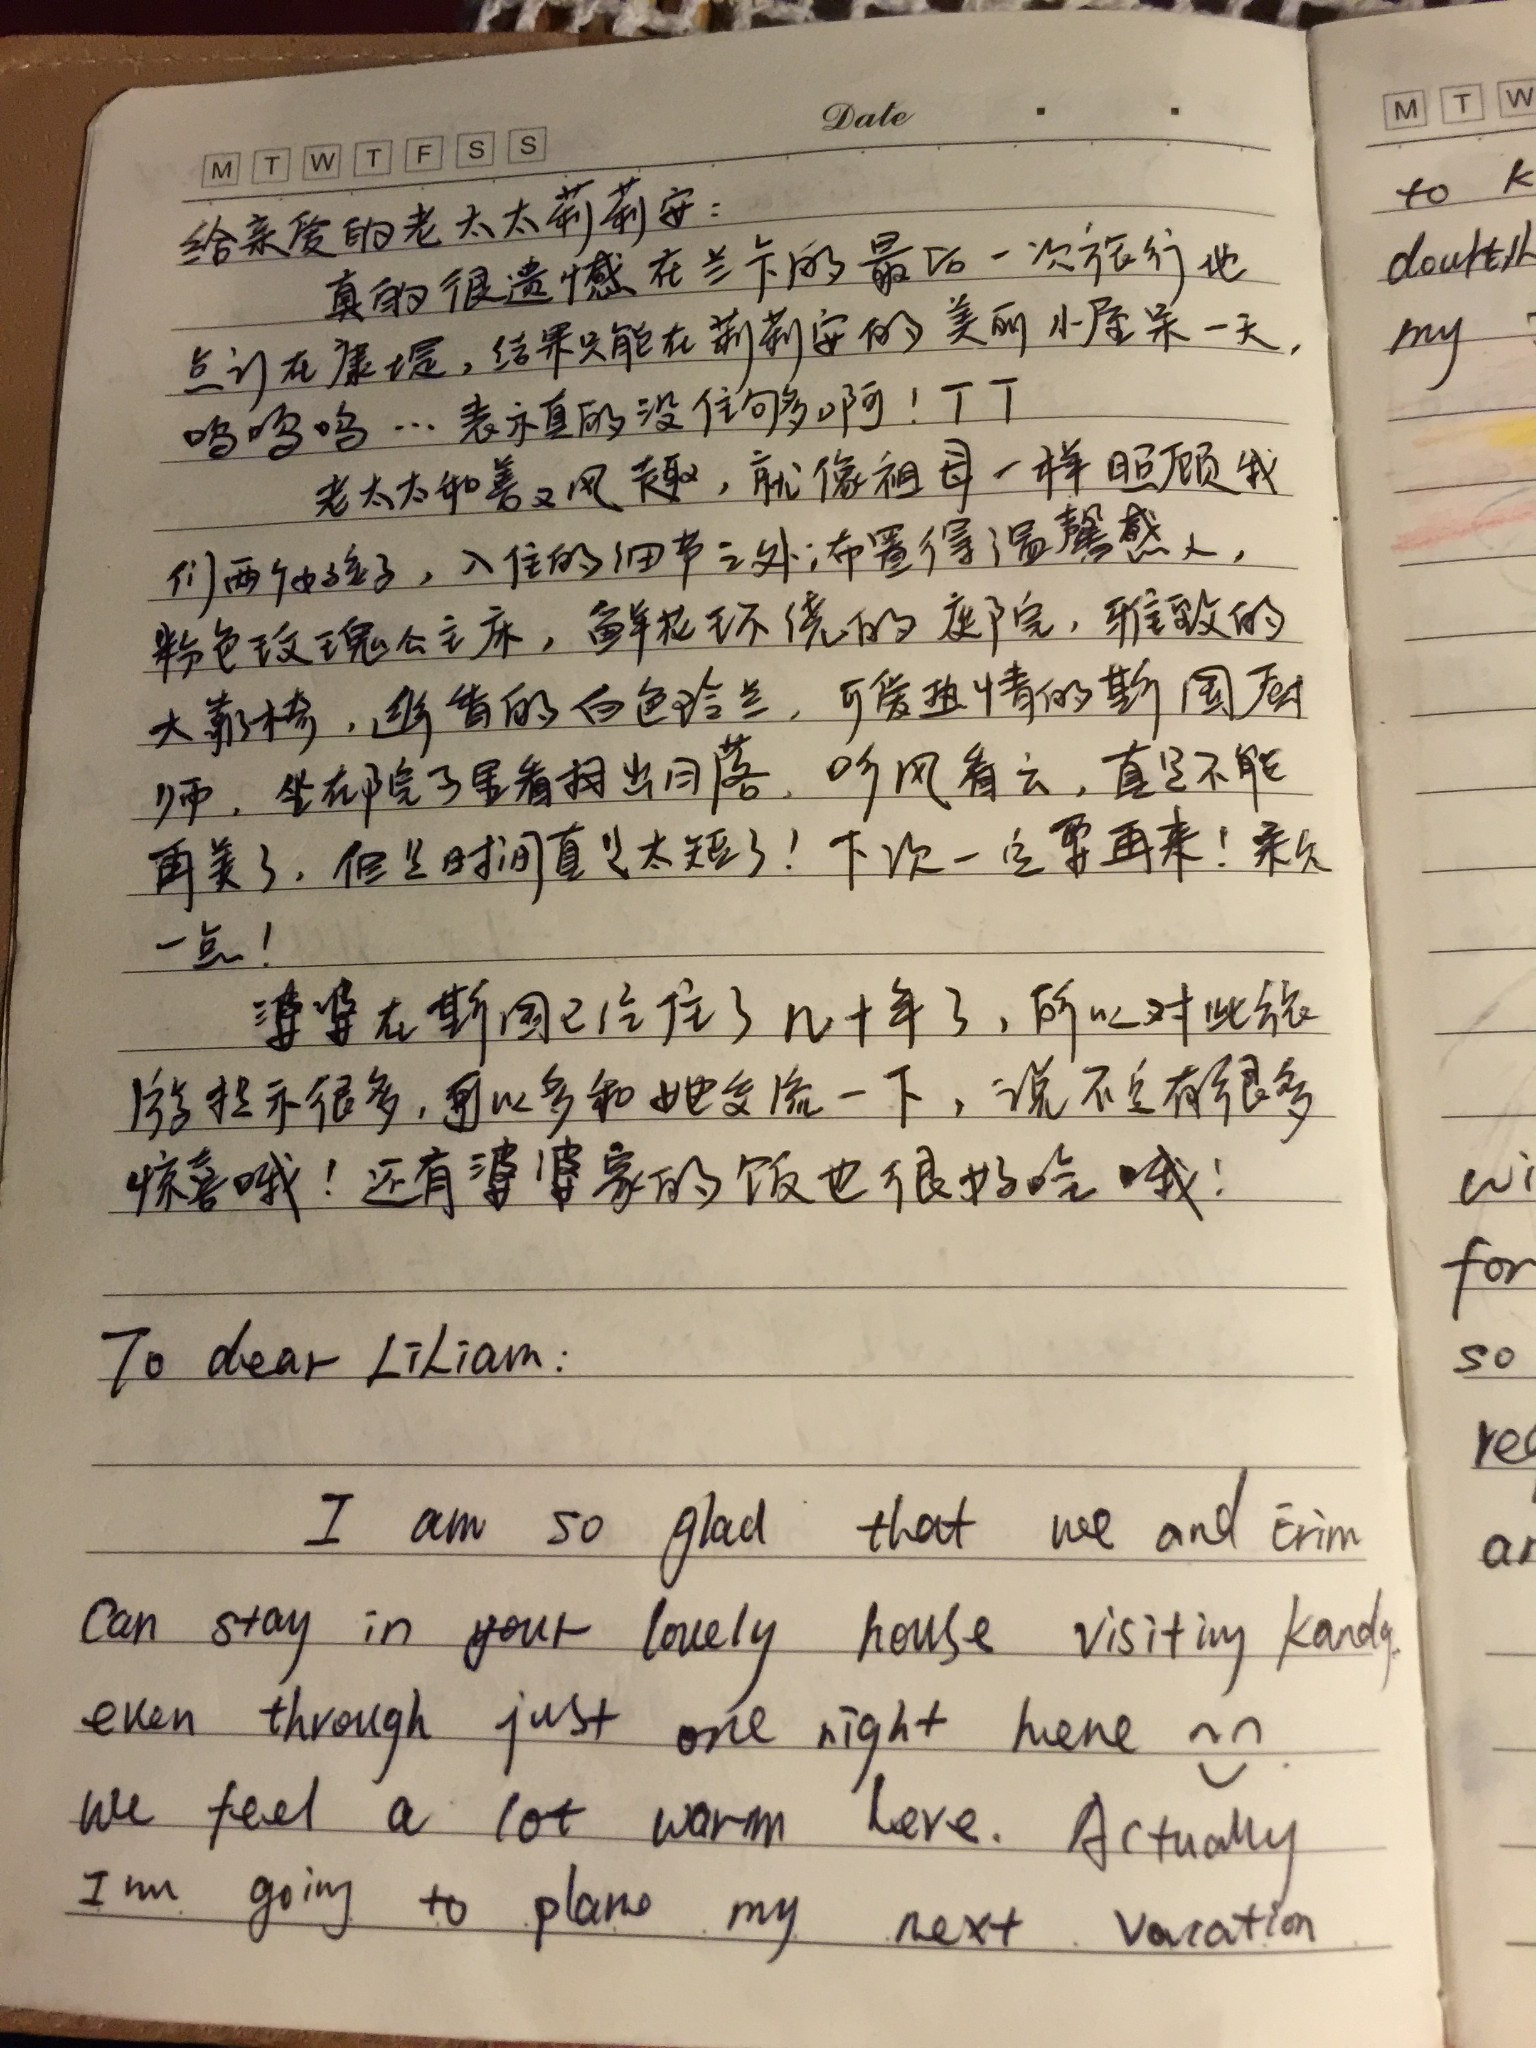 Date
M T W T F S S
给亲爱的老太太莉莉安：
真的很遗憾在兰卡的最后一次旅行地
点订在康堤，结果只能在莉莉安的美丽小屋呆一天，
呜呜呜…表示真的没住够多啊！TT
老太太和善又风趣，就像祖母一样照顾我
们两个孩子，入住的细节之处布置得温馨感人，
粉色玫瑰公主床，鲜花环绕的庭院，雅致的
大靠椅，的白色铃兰，可爱热情的斯国厨
师，坐在院子里看日出日落，听风看云，真是不能
再美了，但是时间真是太短了！下次一定要再来！来久
一点！
婆婆在斯国已经住了几十年了，所以对此旅
游提示很多，可以多和她交流一下，说不定有很多
惊喜哦！还有婆婆家的饭也很好吃哦！
To dear Liliam:
I am so glad that we and Erim
can stay in your lovely house visiting Kandy.
even through just one night here
we feel a lot warm here. Actually
I'm going to plane my next vacation
M T W
to
my
so